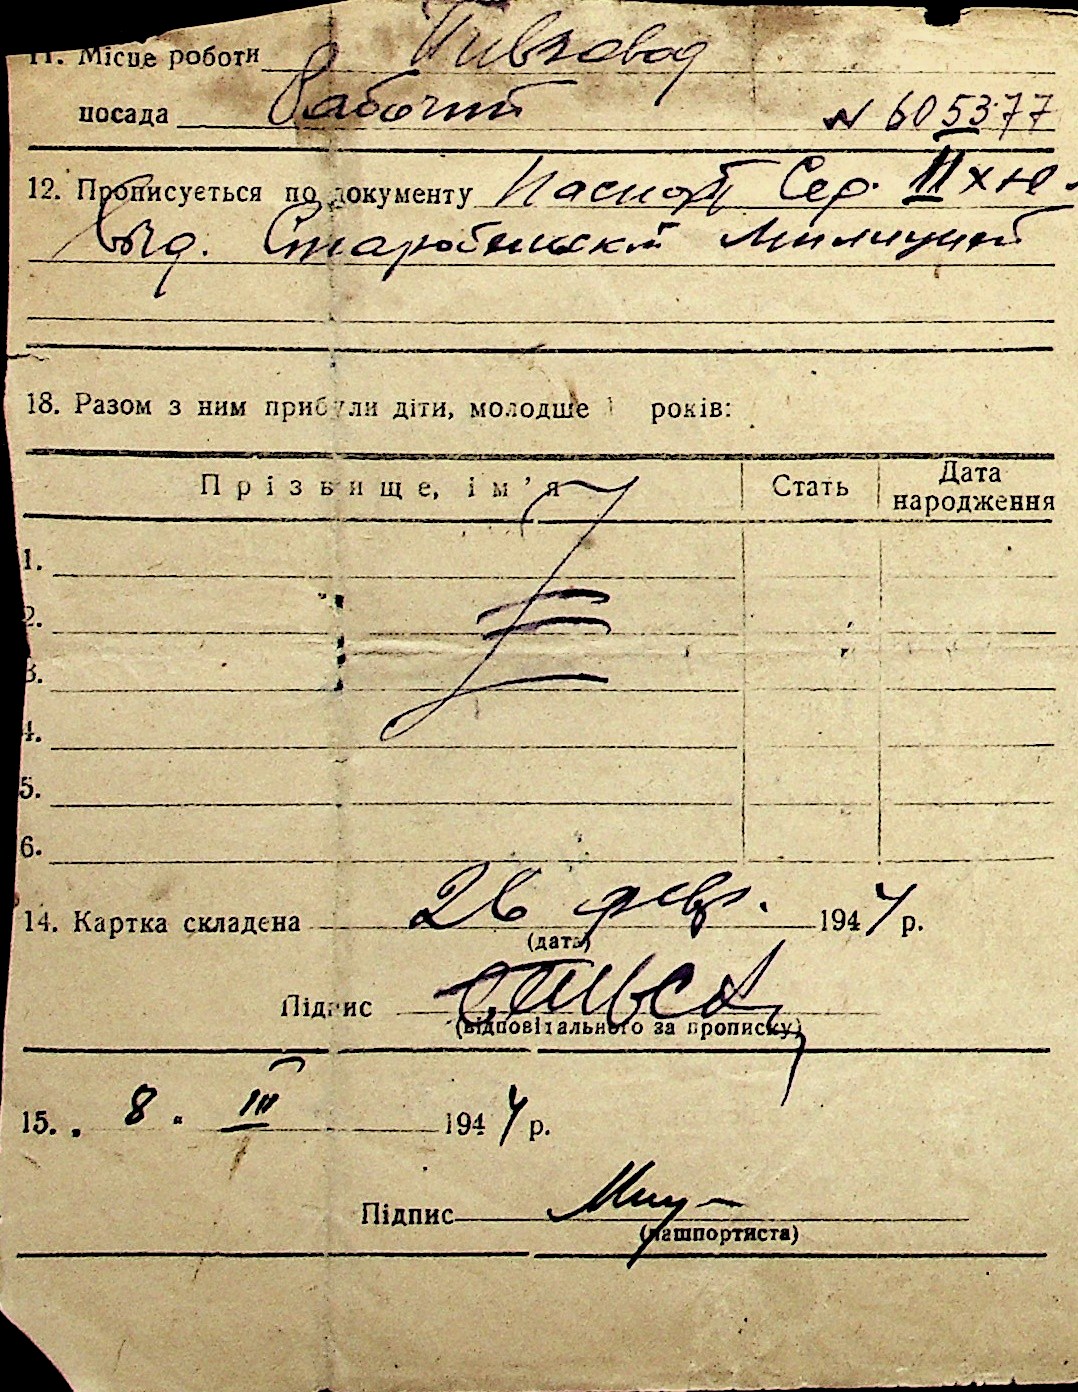 11. Місце роботи Пивзавод
посада Рабочий N 605377
12. Прописується по документу Паспорт Сер. II ХЮ.
выд. Старобельск Милицией
18. Разом з ним прибули діти, молодше років:
Прізвище, ім'я Стать Дата народження
1.
2.
3.
4.
5.
6.
14. Картка складена 26 февр. 1947 р.
(дата)
Підпис
(відповідального за прописку)
15. „ 8 " III 1947 р.
Підпис
(пашпортиста)